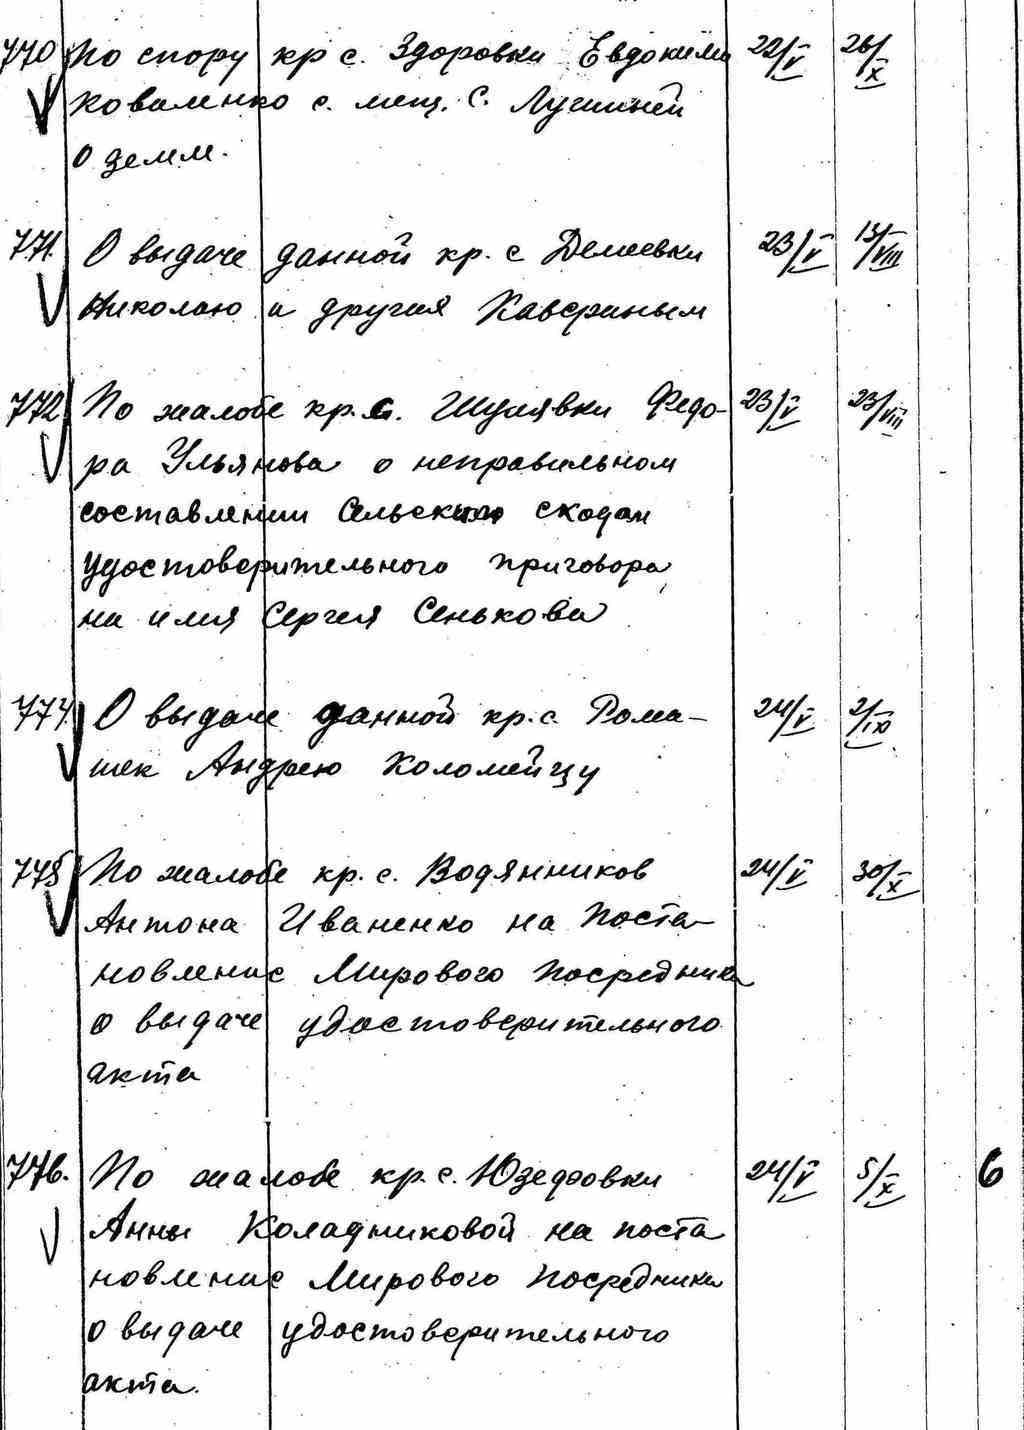 770 По спору кр с. Здоровки Евдокима 22/V 26/X
Коваленко с. мещ. С. Лучиней
о земл.
771. О выдаче данной кр. с Демиевки 23/V 13/VIII
Николаю и другия Кавериным
772 По жалобе кр. с. Шулявки Федо- 23/V 23/VIII
ра Ульянова о неправильном
составлении Сельским сходом
удостоверительного приговора
на имя Сергея Сенькова
774. О выдаче данной кр. с. Рома- 24/V 2/IX
шек Андрею Коломейцу
775 По жалобе кр. с. Водянников 24/V 30/X
Антона Иваненко на Поста-
новление Мирового Посредника
о выдаче удостоверительного
акта
776. По жалобе кр. с. Юзефовки 24/V 5/X 6
Анны Коладниковой на поста
новление Мирового Посредника
о выдаче удостоверительного
акта.